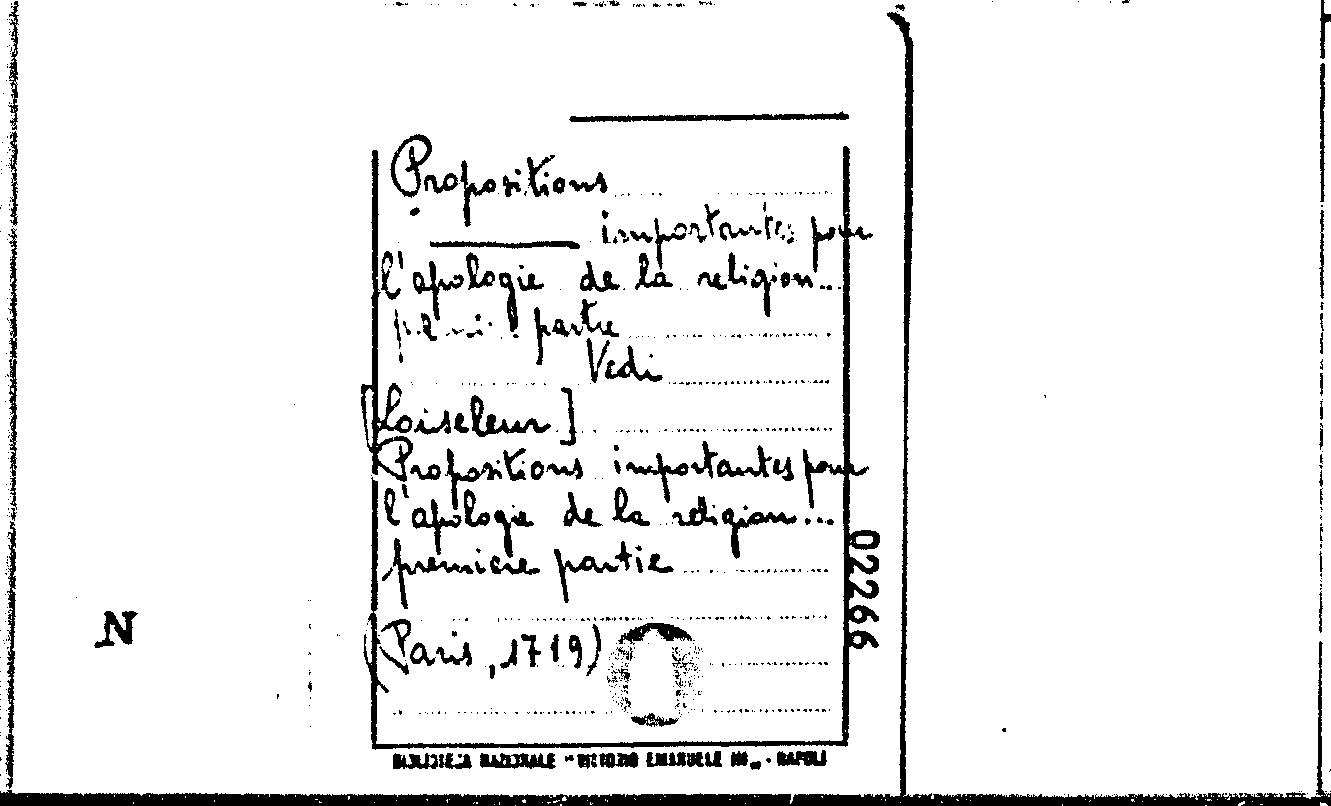 Propositions
importantes pour
l'apologie de la religion...
partie
Vedi
[Loiseleur]
Propositions importantes pour
l'apologie de la religion...
première partie
(Paris, 1719)
BIBLIOTECA NAZIONALE "VITTORIO EMANUELE III" - NAPOLI
02266
N